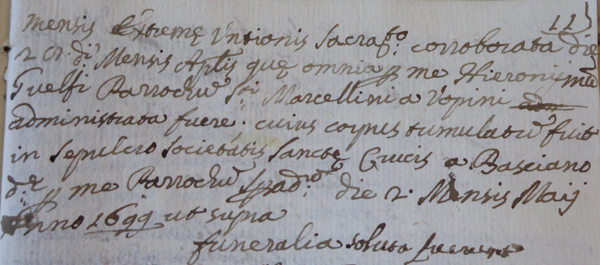 113
mensis extremę Untionis Sacra:to corroborata die
2 di:i Mensis Aplis quę omnia p me Hieronimu
Guelfi Parrochu Sti Marcellini a Vopini
administrata fuere. cuius corpus tumulatu fuit
in sepulcro societatis Sanctę Crucis a Basciano
p me Parrochu die 2. Mensis Maij
Anno 1699 ut supra
funeralia soluta fuerunt